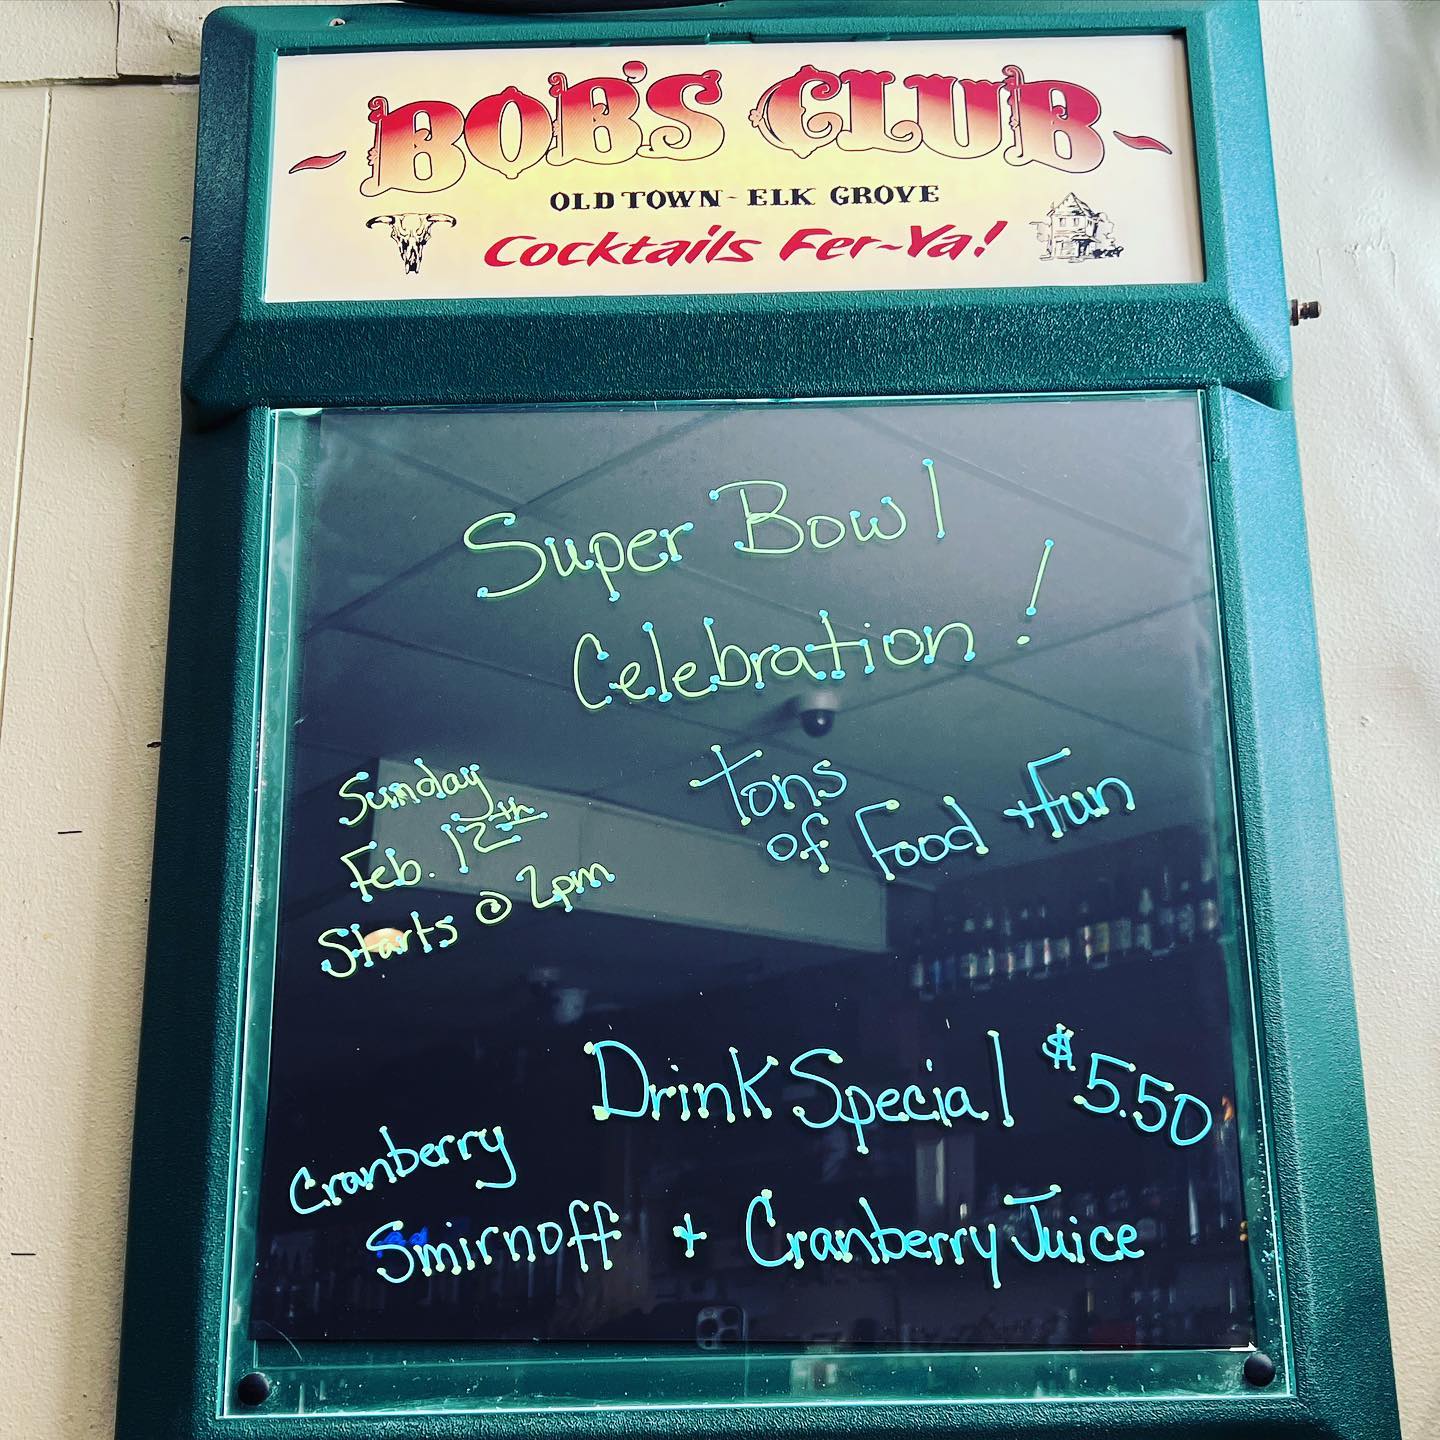 BOB'S CLUB
OLD TOWN - ELK GROVE
Cocktails Fer~Ya!
Super Bowl
Celebration!
Sunday
Feb. 12th
Starts @ 2pm
Tons
of Food + Fun
Drink Special $5.50
Cranberry
Smirnoff + Cranberry Juice